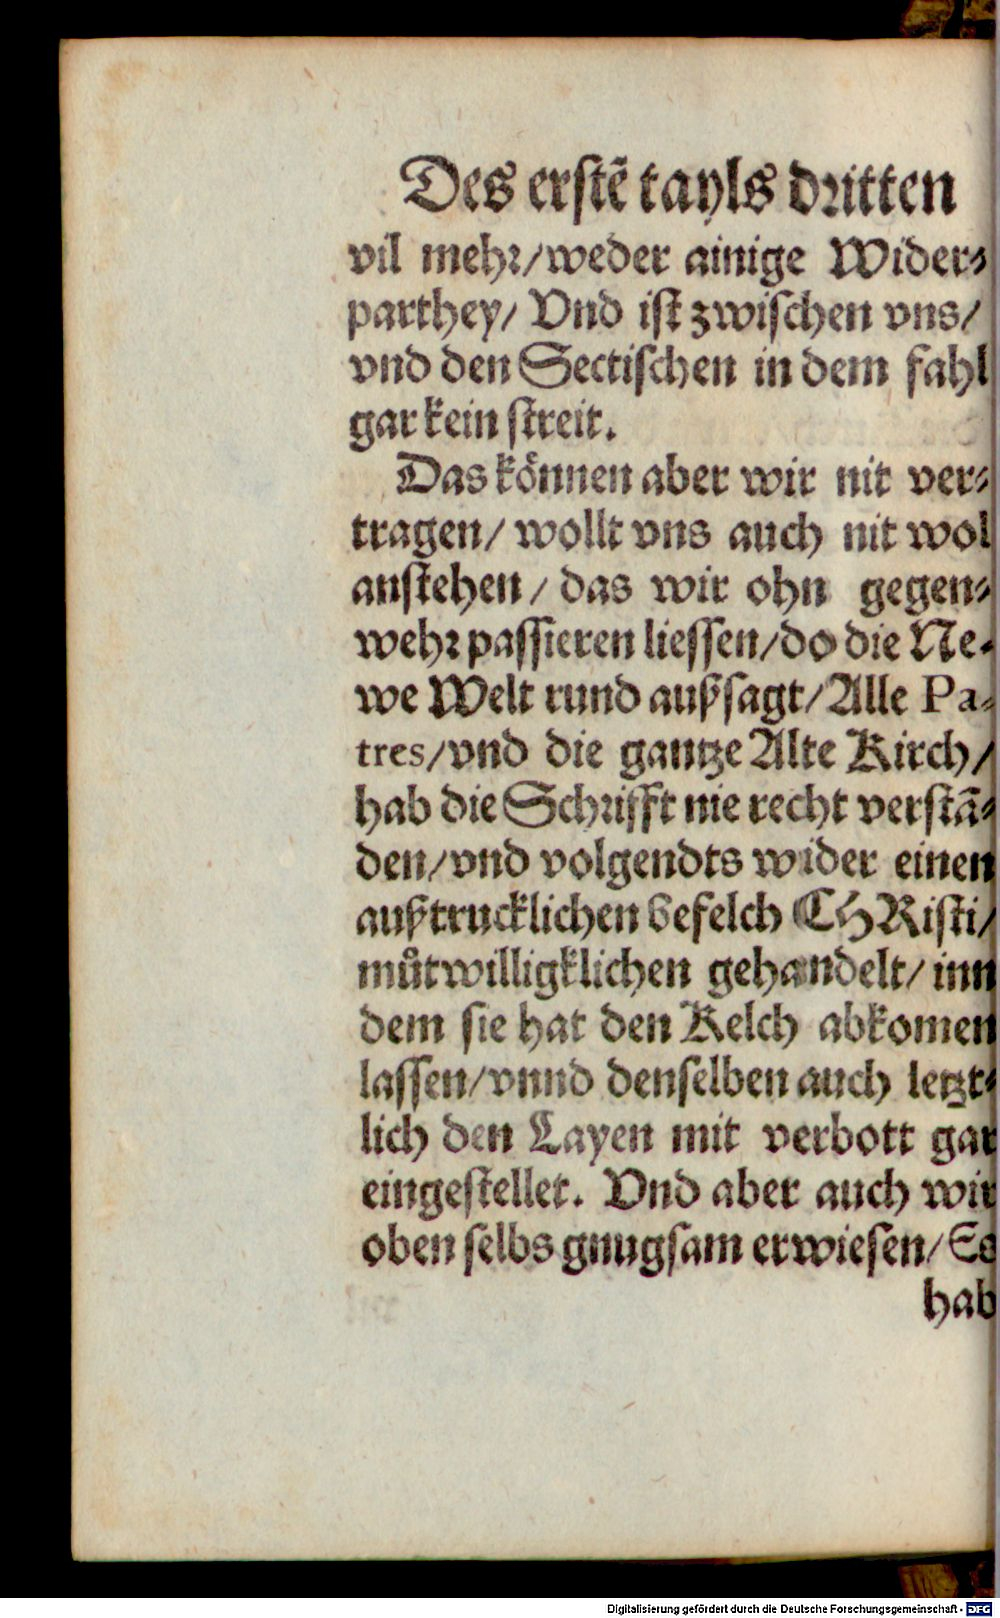 Des erstẽ tayls dritten
vil mehr/weder ainige Wider⸗
parthey/ Vnd ist zwischen vns/
vnd den Sectischen in dem fahl
gar kein streit.
Das können aber wir nit ver⸗
tragen/ wollt vns auch nit wol
anstehen/ das wir ohn gegen⸗
wehr passieren liessen/do die Ne⸗
we Welt rund außsagt/Alle Pa⸗
tres/vnd die gantze Alte Kirch/
hab die Schrifft nie recht verstã⸗
den/vnd volgendts wider einen
außtrucklichen befelch CHRisti/
můtwilligklichen gehandelt/ inn
dem sie hat den Kelch abkomen
lassen/vnnd denselben auch letzt⸗
lich den Layen mit verbott gar
eingestellet. Vnd aber auch wir
oben selbs gnugsam erwiesen/Es
hab
Digitalisierung gefördert durch die Deutsche Forschungsgemeinschaft - DFG